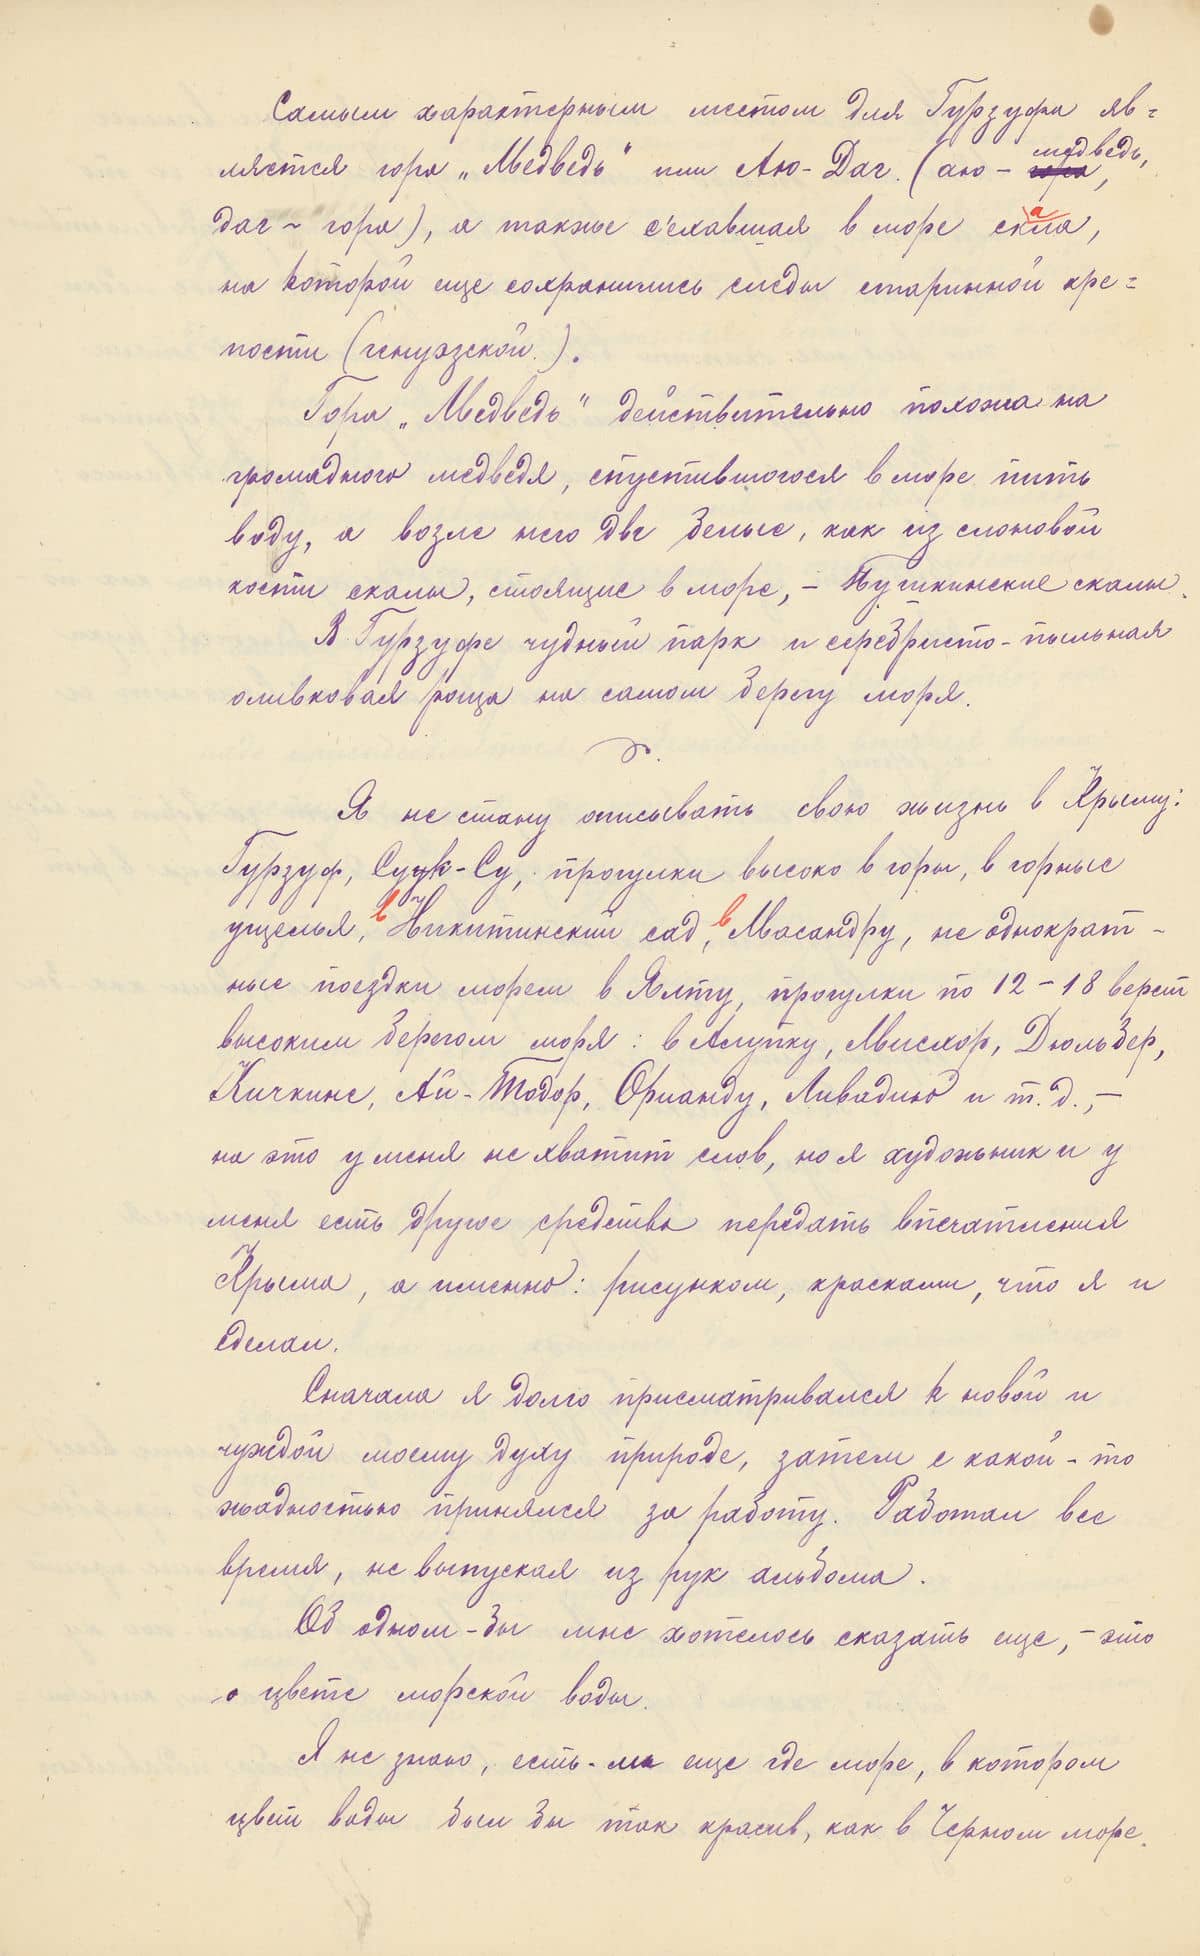 Самым характерным местом для Гурзуфа яв=
ляется гора „Медведь" или Аю-Даг. (аю - медведь,
даг - гора), а также с'ехавшая в море скала,
на которой еще сохранились следы старинной кре=
пости (генуэзской).
Гора „Медведь" действительно похожа на
громадного медведя, спустившогося в море пить
воду, а возле него две белые, как из слоновой
кости скалы, стоящие в море, - Пушкинские скалы.
В Гурзуфе чудный парк и серебристо-пыльная
оливковая роща на самом берегу моря.
Я не стану описывать свою жизнь в Крыму:
Гурзуф, Суук-Су, прогулки высоко в горы, в горные
ущелья, в Никитинский сад, в Масандру, не однократ-
ные поездки морем в Ялту, прогулки по 12-18 верст
высоким берегом моря: в Алупку, Мисхор, Дюльбер,
Кичкине, Ай-Тодор, Орианду, Ливадию и т.д., -
на это у меня не хватит слов, но я художник и у
меня есть другие средства передать впечатления
Крыма, а именно: рисунком, красками, что я и
сделал.
Сначала я долго присматривался к новой и
чуждой моему духу природе, затем с какой-то
жадностью принялся за работу. Работал все
время, не выпуская из рук альбома.
Об одном-бы мне хотелось сказать еще, - это
о цвете морской воды.
Я не знаю, есть-ли еще где море, в котором
цвет воды был бы так красив, как в Черном море.